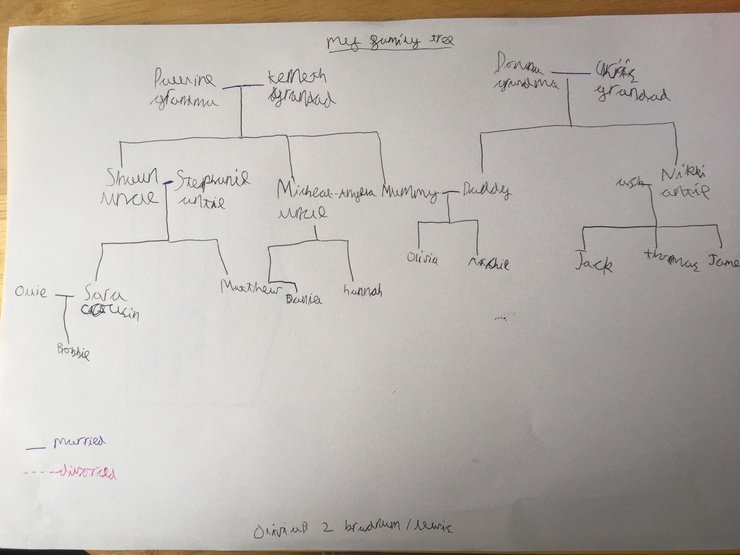 My family tree
Pauline
grandma
kenneth
grandad
Donna
grandma
grandad
Shaun
uncle
Stephanie
antie
Micheal-Angela
uncle
Mummy
Daddy
ash
Nikki
antie
Ollie
Sara
cousin
Matthew
Daniel
hannah
Olivia
Jack
thomas
Jame
Bobbie
married
divorced
OliviaB 2